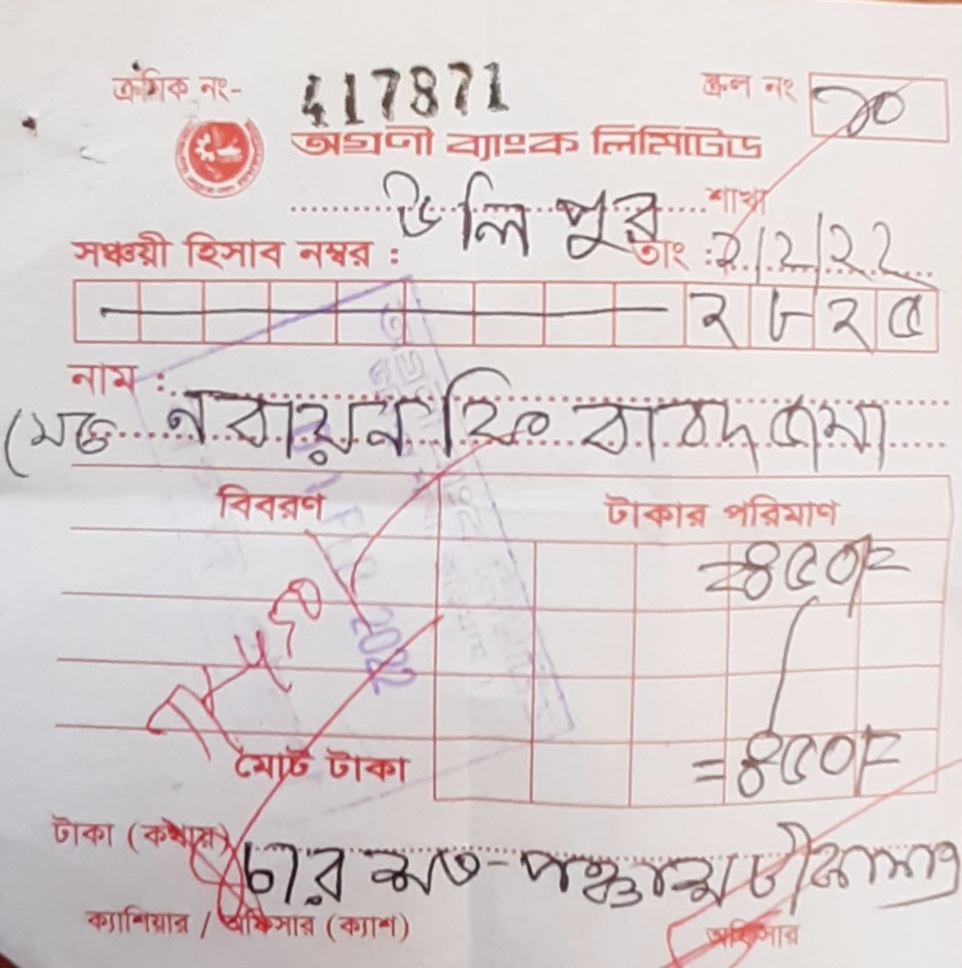 ক্রমিক নং- 417871 স্ক্রল নং ১০
অগ্রণী ব্যাংক লিমিটেড
উলিপুর শাখা
সঞ্চয়ী হিসাব নম্বর : তাং : ২/২/২২
২৮২৫
নাম :
নবায়ন ফি বাবদ জমা
বিবরণ টাকার পরিমাণ
=৪৫০/=
মোট টাকা =৪৫০/=
টাকা (কথায়) চার শত পঞ্চাশ টাকা মাত্র
ক্যাশিয়ার / অফিসার (ক্যাশ) অফিসার